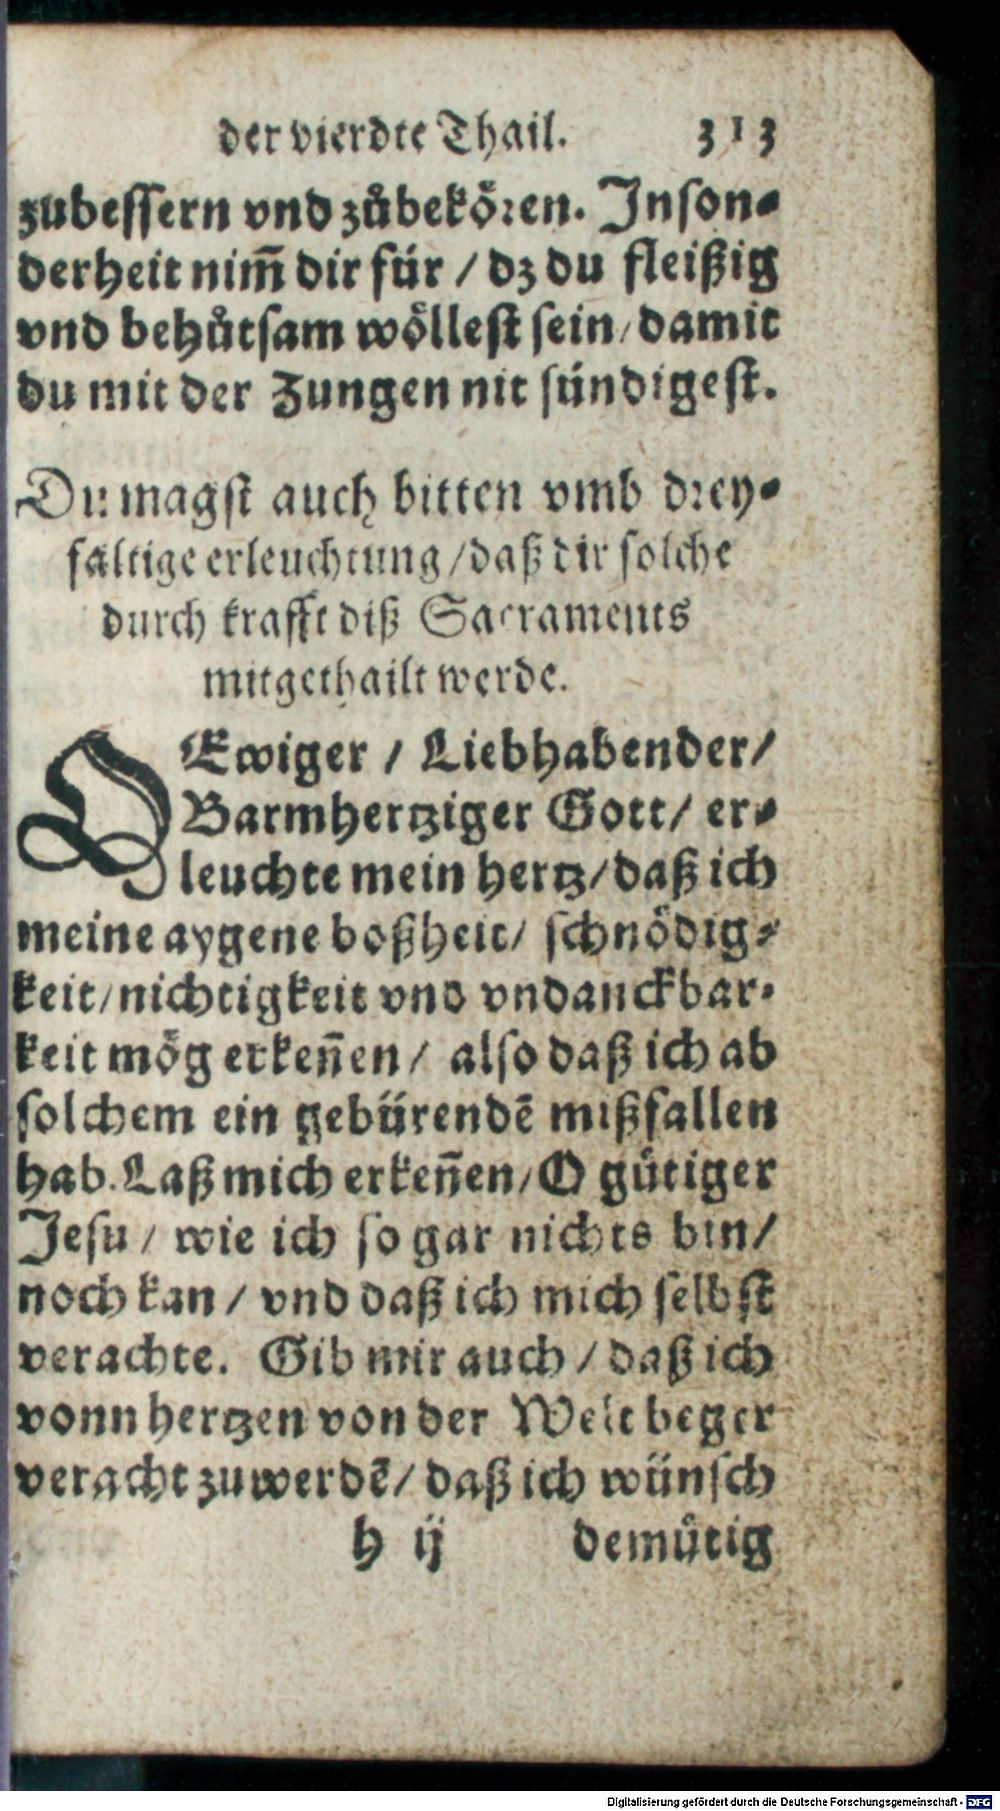 der vierdte Thail. 313
zubessern vnd zůbekören. Inson⸗
derheit nim̃ dir für / dz du fleißig
vnd behůtsam wöllest sein / damit
du mit der Zungen nit sündigest.
Du magst auch bitten vmb drey⸗
fältige erleuchtung / daß dir solche
durch krafft diß Sacraments
mitgethailt werde.
O Ewiger / Liebhabender /
Barmhertziger Gott / er⸗
leuchte mein hertz / daß ich
meine aygene boßheit / schnödig⸗
keit / nichtigkeit vnd vndanckbar⸗
keit mög erkeñen / also daß ich ab
solchem ein gebürendẽ mißfallen
hab. Laß mich erkeñen / O gütiger
Jesu / wie ich so gar nichts bin /
noch kan / vnd daß ich mich selbst
verachte. Gib mir auch / daß ich
vonn hertzen von der Welt beger
veracht zuwerdẽ / daß ich wünsch
h ij demütig
Digitalisierung gefördert durch die Deutsche Forschungsgemeinschaft - DFG